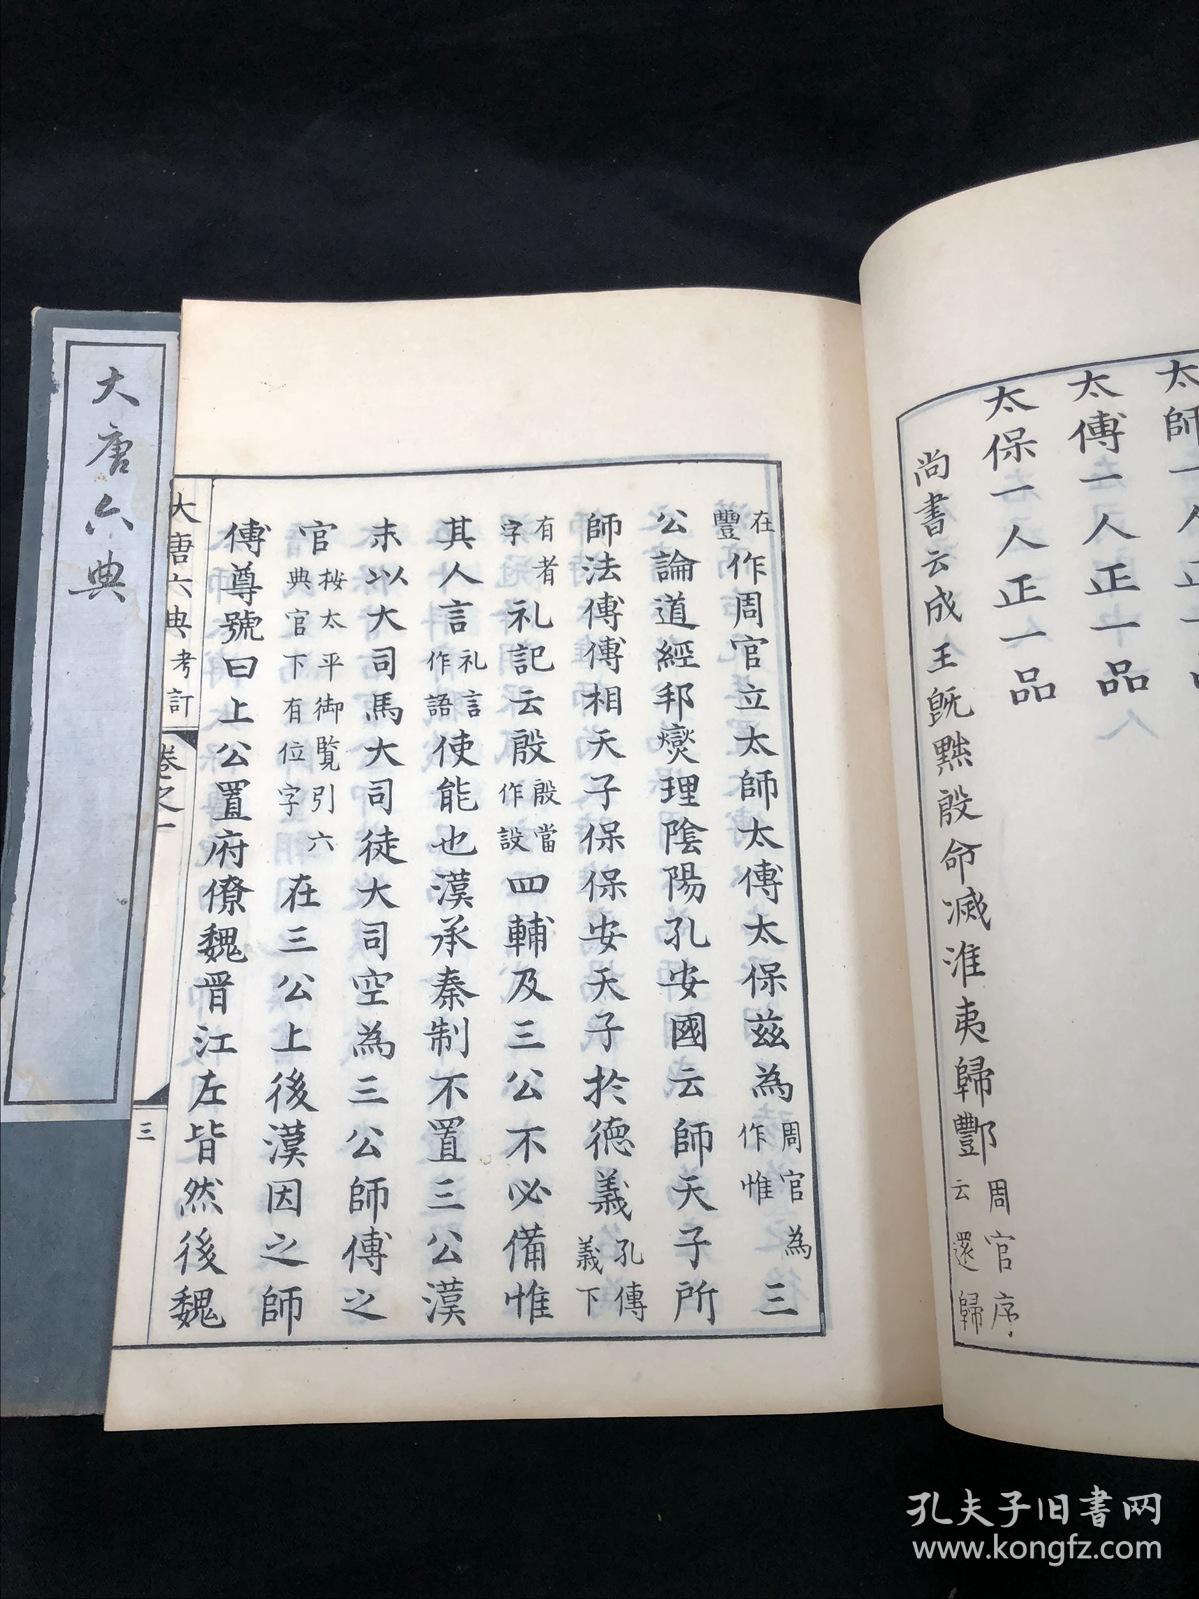 太師一人正一
太傅一人正一品
太保一人正一品
尚書云成王既黜殷命滅淮夷歸酆周官序云還歸
在豐作周官立太師太傅太保茲為周官為作惟三
公論道經邦燮理陰陽孔安國云師天子所
師法傅傅相天子保保安天子於德義孔傳義下
有者字礼記云殷殷當作設四輔及三公不必備惟
其人言礼言作語使能也漢承秦制不置三公漢
末以大司馬大司徒大司空為三公師傅之
官按太平御覧引六典官下有位字在三公上後漢因之師
傅尊號曰上公置府僚魏晋江左皆然後魏
大唐六典考訂 卷之一 三
大唐六典
孔夫子旧書网
www.kongfz.com